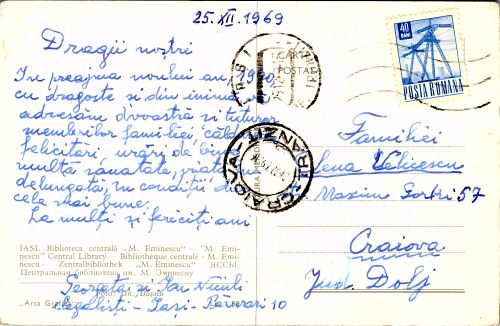 25.XII.1969
Dragii noștri
In preajma noului an 1970
cu dragoste și din inimă
adresăm dvoastră și tuturor
membrilor familiei, calde
felicitări, urări de bine
multă sănătate, viață
delungată, în condiții din
cele mai bune.
La mulți și fericiți ani
Georgeta și
Iași
10
CARTE
POSTALĂ
40
BANI
POSTA ROMANA
CRAIOVA
TRANZIT
Familiei
Elena Velicescu
Maxim Gorki 57
Craiova
Jud. Dolj
IAȘI. Biblioteca centrală „M. Eminescu" – "M. Emi-
nescu" Central Library – Bibliothèque centrale „M. Emi-
nescu" – Zentralbibliothek „M. Eminescu" ЯССЫ.
Центральная библиотека им. М. Эминеску
Foto: Gh.
"Arta